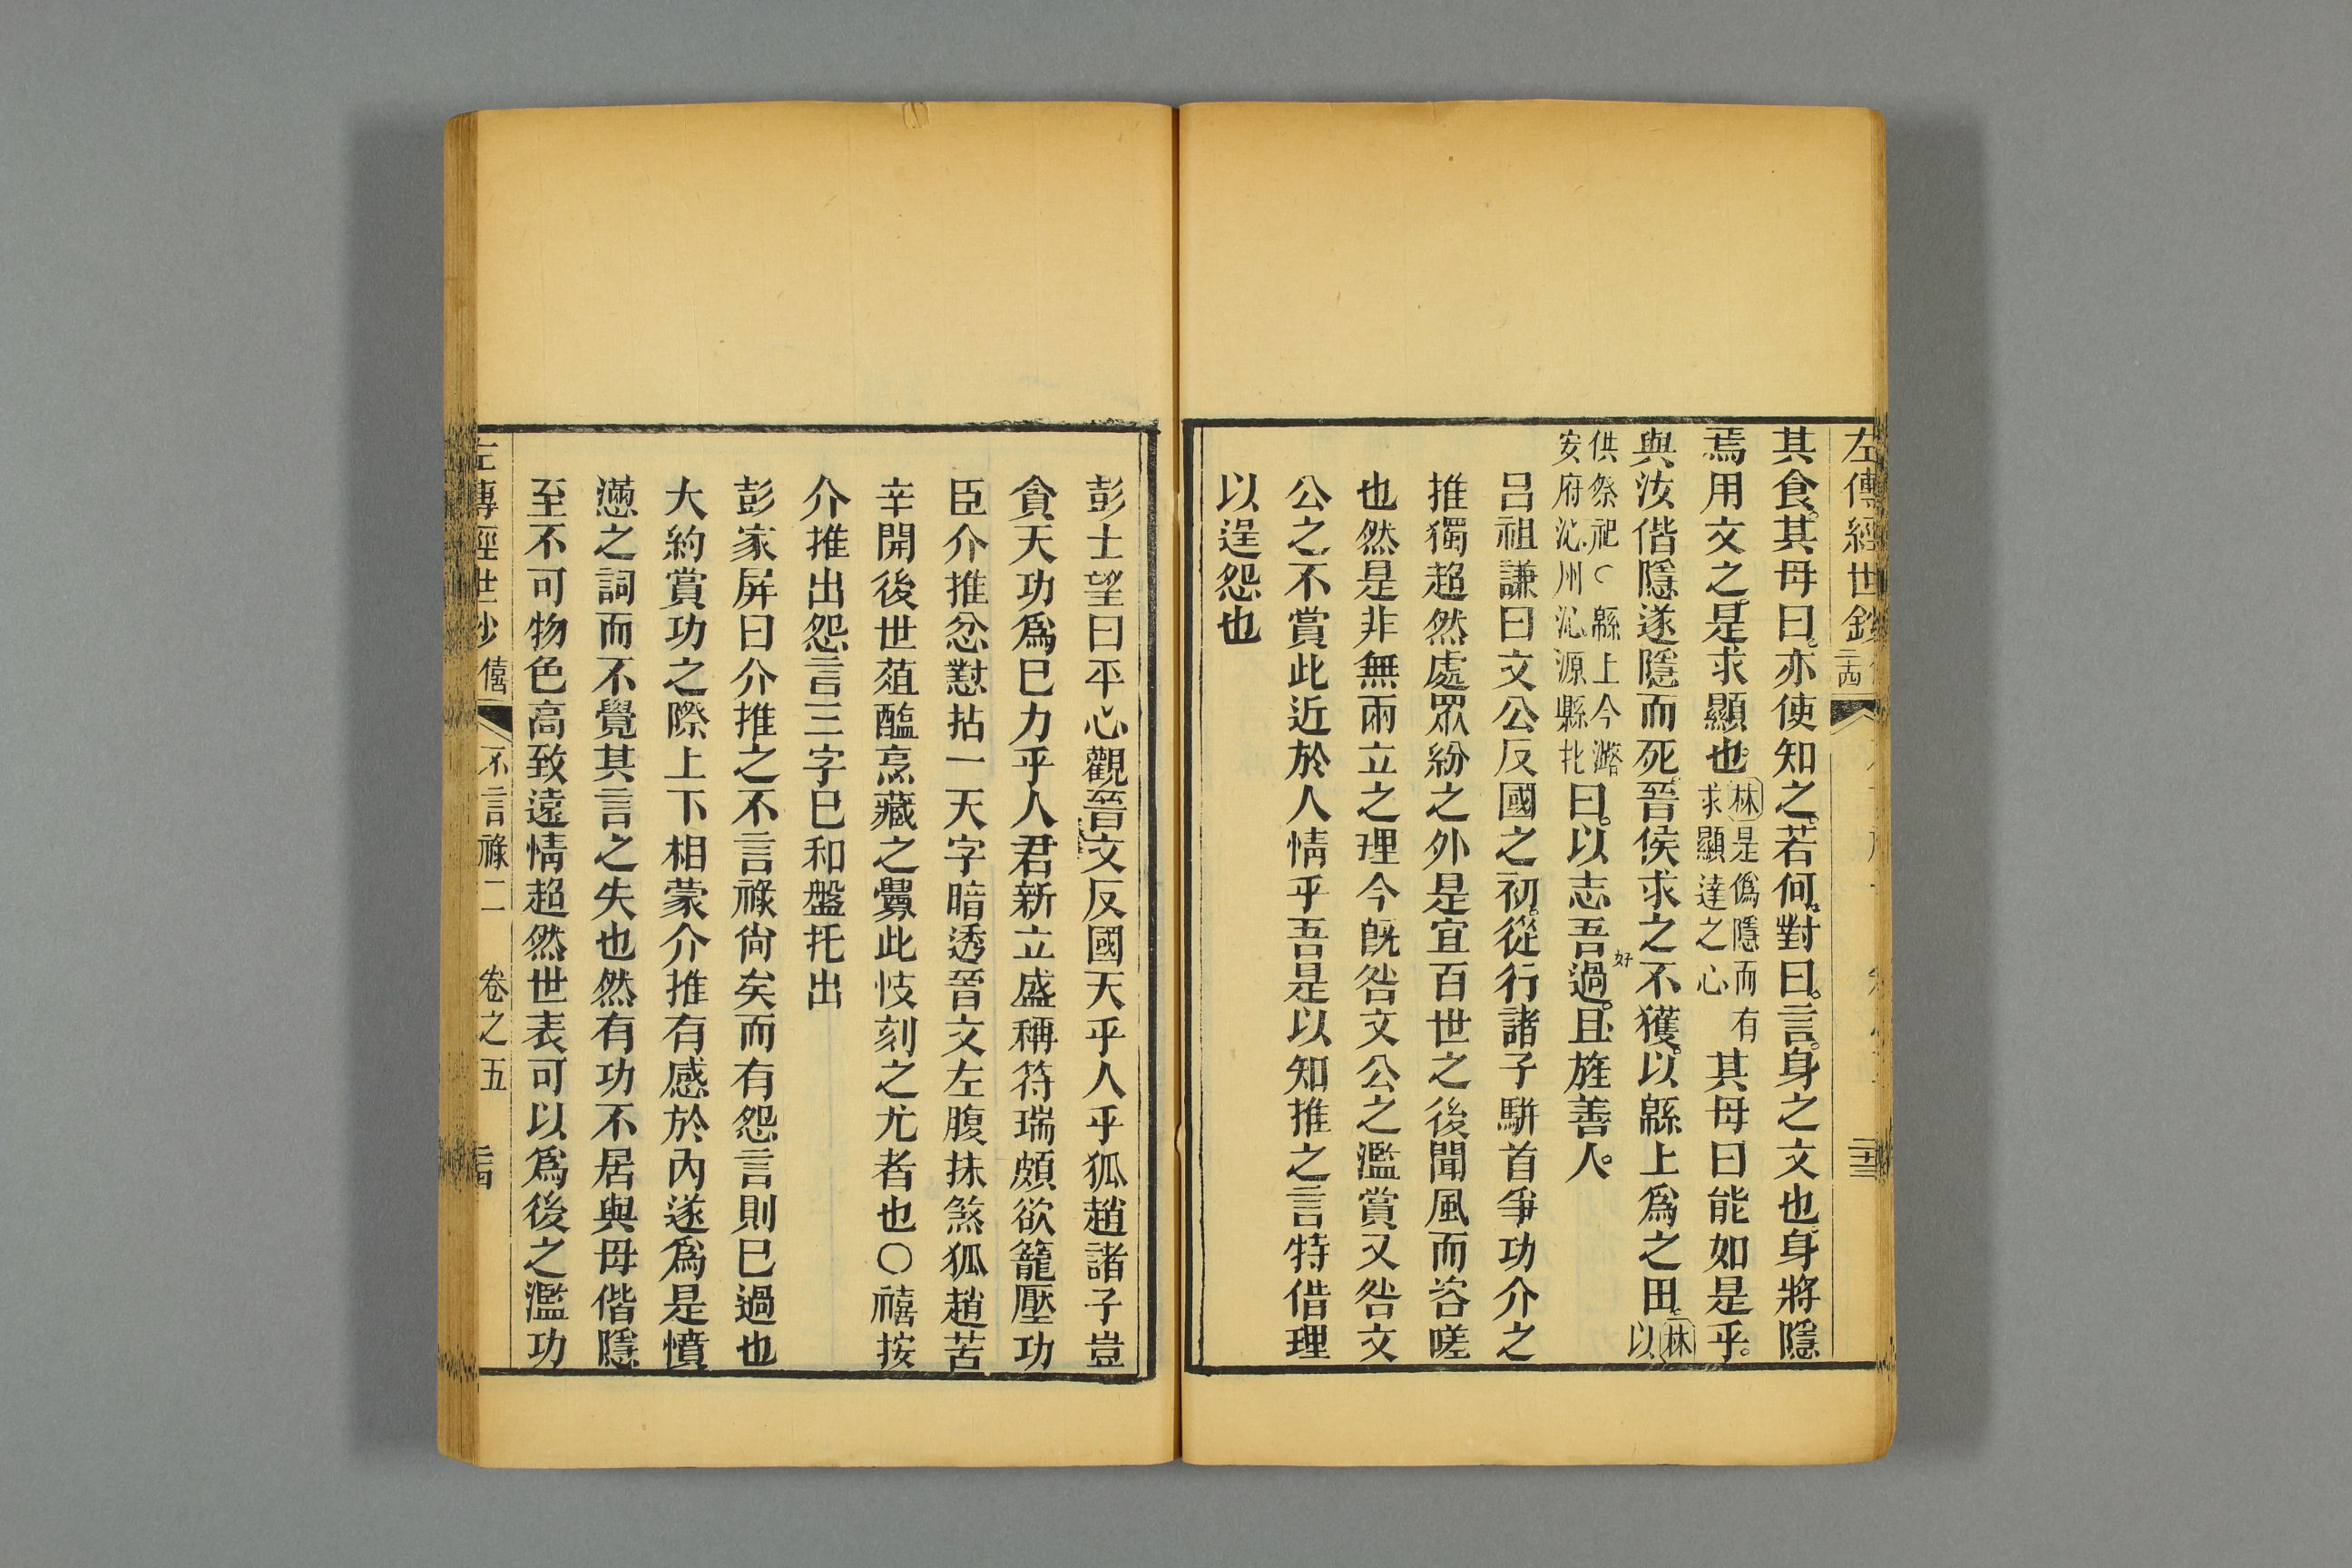 左傳經世鈔
其食其母曰亦使知之若何對曰言身之文也身將隱
焉用文之是求顯也林是僞隱而有求顯達之心其母曰能如是乎
與汝偕隱遂隱而死晉侯求之不獲以緜上爲之田林以
供祭祀○緜上今潞安府沁州沁源縣北曰以志吾過好且旌善人
呂祖謙曰文公反國之初從行諸子駢首爭功介之
推獨超然處眾紛之外是宜百世之後聞風而咨嗟
也然是非無兩立之理今旣咎文公之濫賞又咎文
公之不賞此近於人情乎吾是以知推之言特借理
以逞怨也
彭士望曰平心觀晉文反國天乎人乎狐趙諸子豈
貪天功爲巳力乎人君新立盛稱符瑞頗欲籠壓功
臣介推忿懟拈一天字暗透晉文左腹抹煞狐趙苦
辛開後世葅醢烹藏之釁此忮刻之尤者也○禧按
介推出怨言三字巳和盤托出
彭家屏曰介推之不言祿尙矣而有怨言則巳過也
大約賞功之際上下相蒙介推有感於內遂爲是憤
懣之詞而不覺其言之失也然有功不居與母偕隱
至不可物色高致遠情超然世表可以爲後之濫功
左傳經世鈔 僖 不言祿二 卷之五